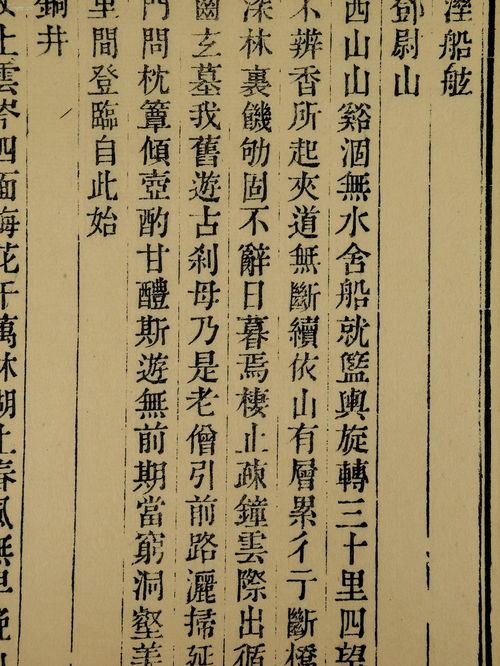 溼船舷
鄧尉山
西山山谿涸無水舍船就籃輿旋轉三十里四望
不辨香所起夾道無斷續依山有層累彳亍斷橋
深林裏饑劬固不辭日暮焉棲止疎鐘雲際出循
圖玄墓我舊遊占刹毋乃是老僧引前路灑掃延
門問枕簟傾壺酌甘醴斯遊無前期當窮洞壑美
里間登臨自此始
銅井
上雲岑四面梅花千萬林湖上春風無早晚山